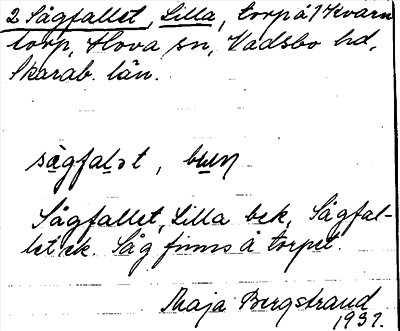 2 Sågfallet, Lilla, torp å 1 Kvarn
torp, Hova sn, Vadsbo hd,
Skarab. län.
sågfalət,
Sågfallet, Lilla bek, Sågfal-
let ek. Såg finns å torpet.
Maja Bergstrand
1937.